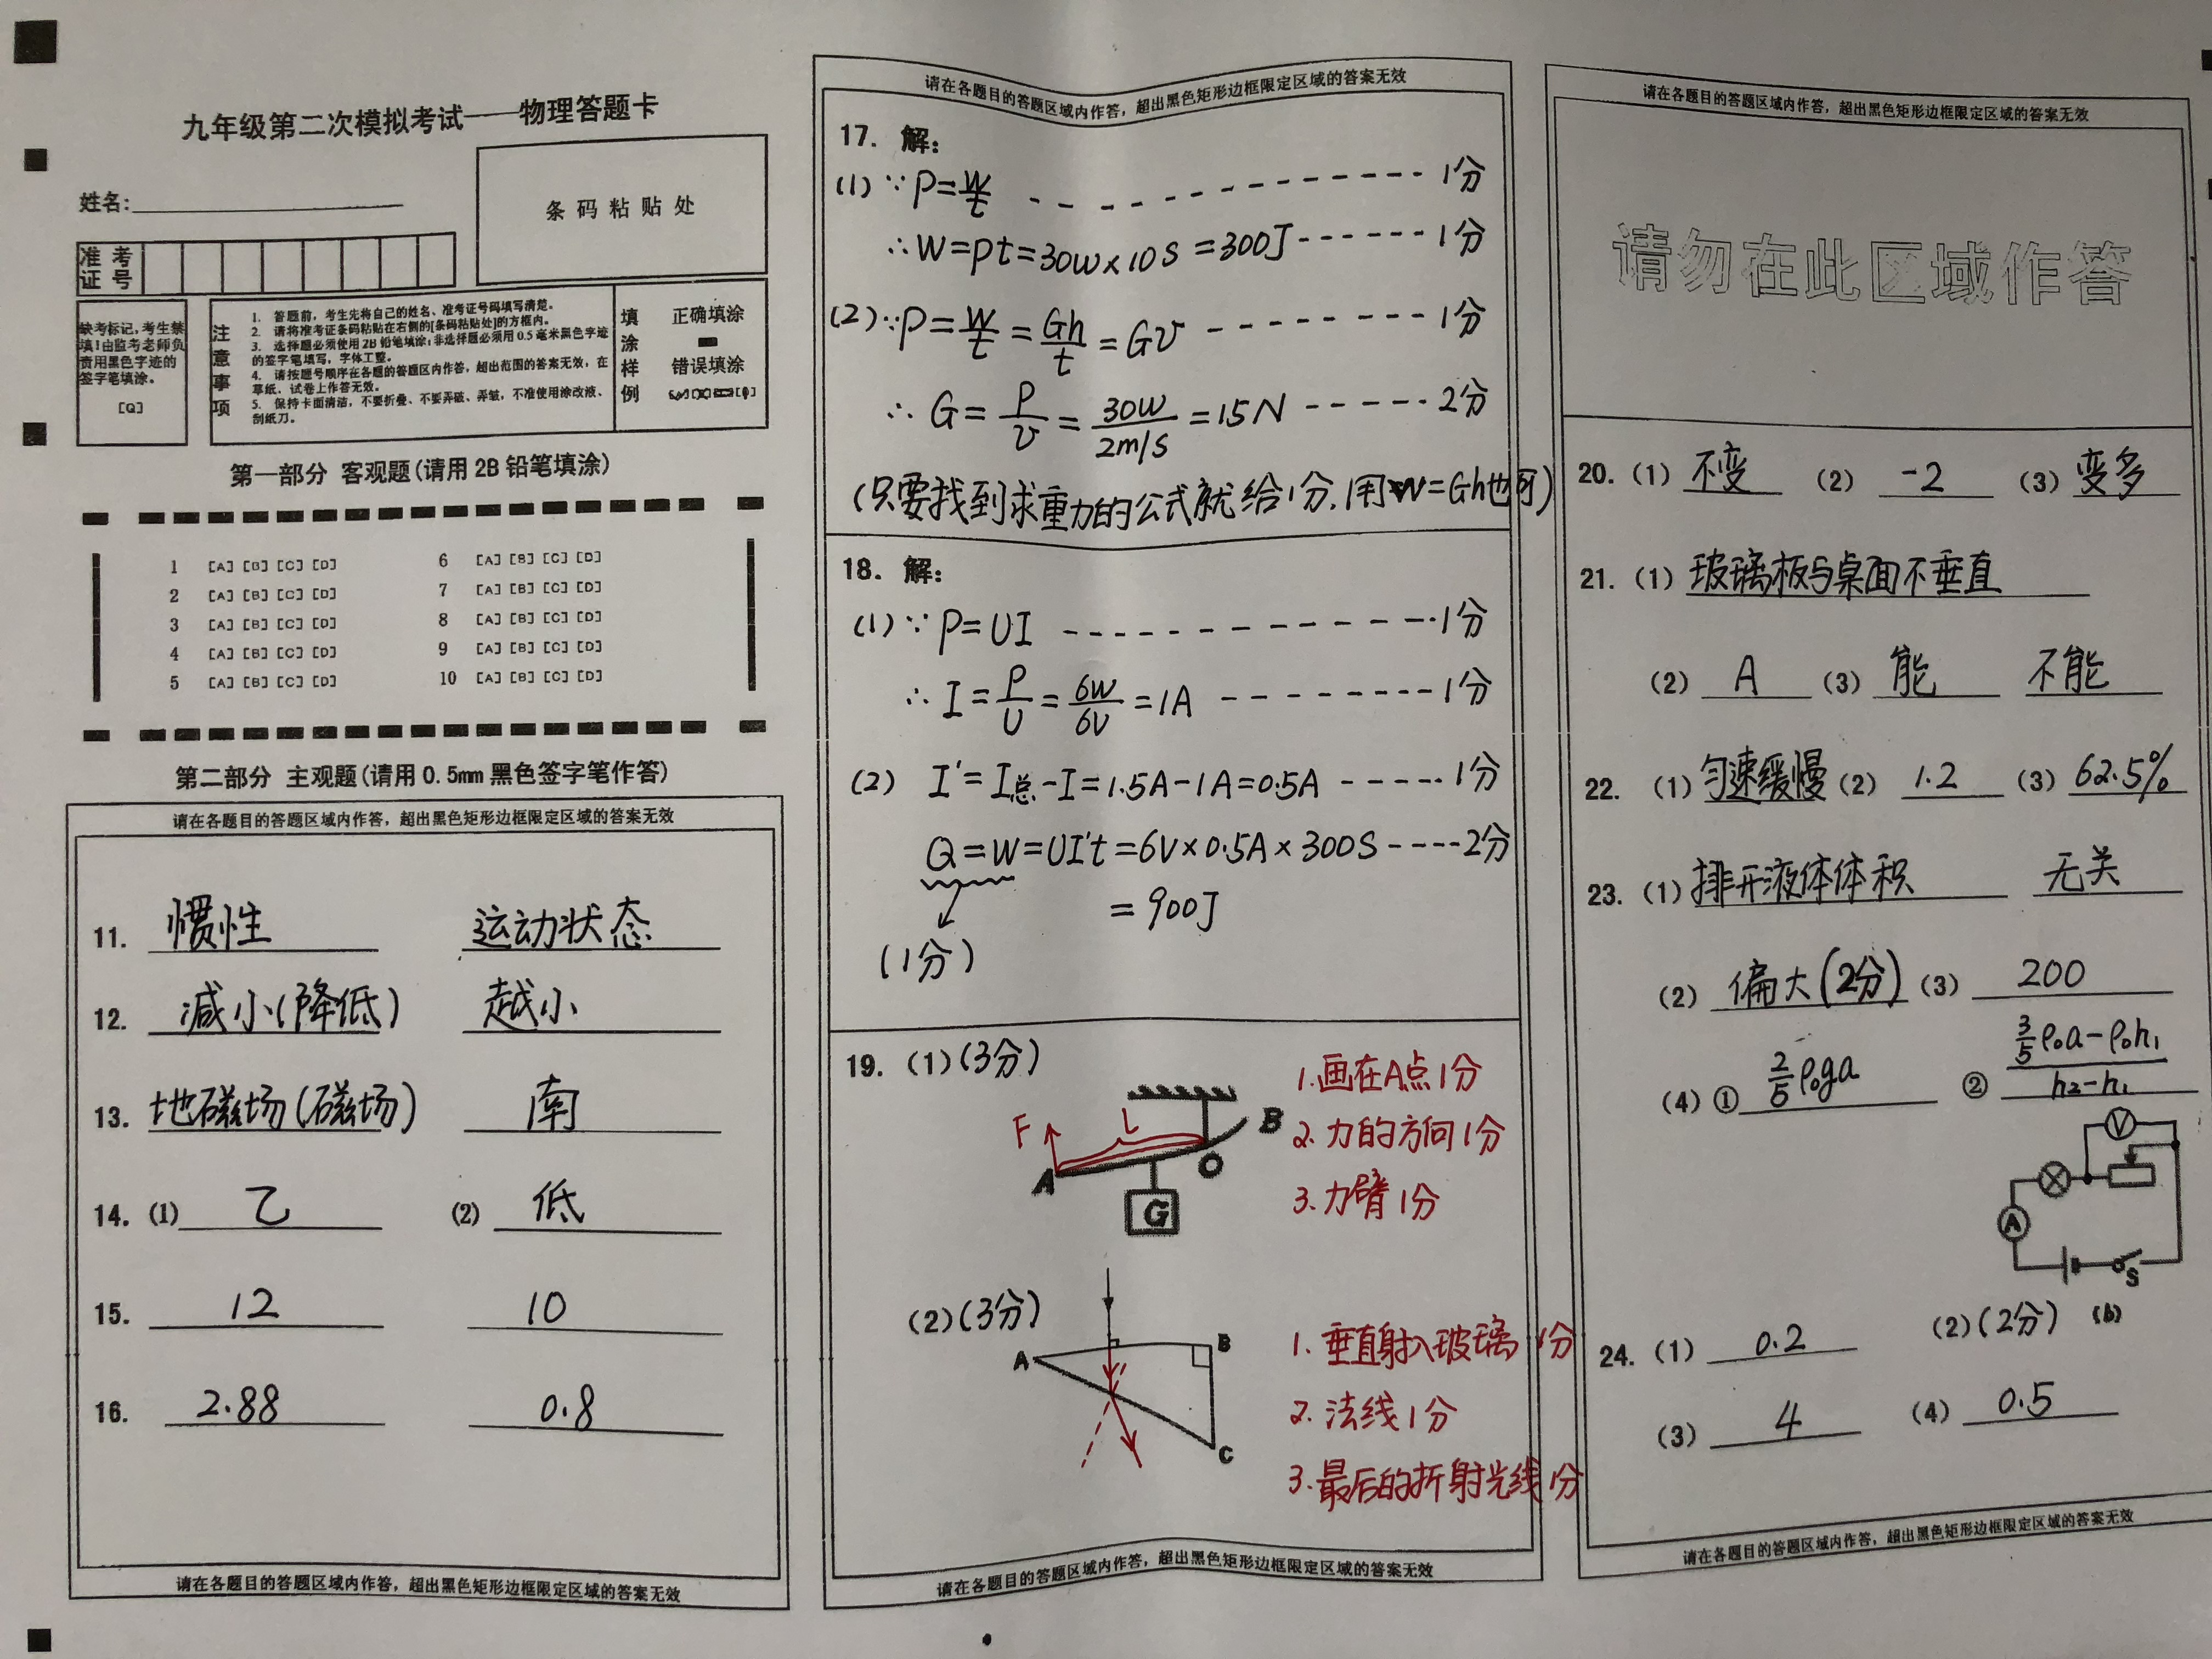 九年级第二次模拟考试——物理答题卡
姓名:
条码粘贴处
准考证号
缺考标记,考生禁
填!由监考老师负
责用黑色字迹的
签字笔填涂。
[Q]
注意事项
1. 答题前,考生先将自己的姓名、准考证号码填写清楚。
2. 请将准考证条码粘贴在右侧的[条码粘贴处]的方框内。
3. 选择题必须使用2B铅笔填涂;非选择题必须用0.5毫米黑色字迹
的签字笔填写,字体工整。
4. 请按题号顺序在各题的答题区内作答,超出范围的答案无效,在
草纸、试卷上作答无效。
5. 保持卡面清洁,不要折叠、不要弄破、弄皱,不准使用涂改液、
刮纸刀。
填涂样例
正确填涂
错误填涂
第一部分 客观题(请用2B铅笔填涂)
1 [A] [B] [C] [D] 6 [A] [B] [C] [D]
2 [A] [B] [C] [D] 7 [A] [B] [C] [D]
3 [A] [B] [C] [D] 8 [A] [B] [C] [D]
4 [A] [B] [C] [D] 9 [A] [B] [C] [D]
5 [A] [B] [C] [D] 10 [A] [B] [C] [D]
第二部分 主观题(请用0.5mm黑色签字笔作答)
请在各题目的答题区域内作答,超出黑色矩形边框限定区域的答案无效
11. 惯性 运动状态
12. 减小(降低) 越小
13. 地磁场(磁场) 南
14. (1) 乙 (2) 低
15. 12 10
16. 2.88 0.8
请在各题目的答题区域内作答,超出黑色矩形边框限定区域的答案无效
请在各题目的答题区域内作答,超出黑色矩形边框限定区域的答案无效
17. 解:
(1) ∵P=W/t -------------- 1分
∴W=Pt=30W×10S=300J ------ 1分
(2) ∵P=W/t=Gh/t=Gv -------- 1分
∴G=P/v=30W/2m/s=15N ----- 2分
(只要找到求重力的公式就给1分,用W=Gh也可)
18. 解:
(1) ∵P=UI -------------- 1分
∴I=P/U=6W/6V=1A --------- 1分
(2) I'=I总-I=1.5A-1A=0.5A ----- 1分
Q=W=UI't=6V×0.5A×300S ---- 2分
=900J
(1分)
19. (1)(3分)
F L A O B G
1.画在A点1分
2.力的方向1分
3.力臂1分
(2)(3分)
A B C
1.垂直射入玻璃1分
2.法线1分
3.最后的折射光线1分
请在各题目的答题区域内作答,超出黑色矩形边框限定区域的答案无效
请在各题目的答题区域内作答,超出黑色矩形边框限定区域的答案无效
请勿在此区域作答
20. (1) 不变 (2) -2 (3) 变多
21. (1) 玻璃板与桌面不垂直
(2) A (3) 能 不能
22. (1) 匀速缓慢 (2) 1.2 (3) 62.5%
23. (1) 排开液体体积 无关
(2) 偏大(2分) (3) 200
(4) ① 2/5ρ₀ga ② (3/5ρ₀a-ρ₀h₁)/(h₂-h₁)
V A S
24. (1) 0.2 (2)(2分) (b)
(3) 4 (4) 0.5
请在各题目的答题区域内作答,超出黑色矩形边框限定区域的答案无效